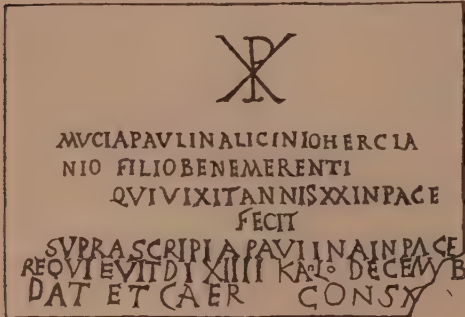 ☧
MVCIAPAVLINALICINIOHERCLA
NIO FILIOBENEMERENTI
QVIVIXITANNISXXINPACE
FECIT
SVPRASCRIPIAPAVIINAINPACE
REQVIEVITDIXIIII KALo DECEMB
DAT ET CAER CONSS